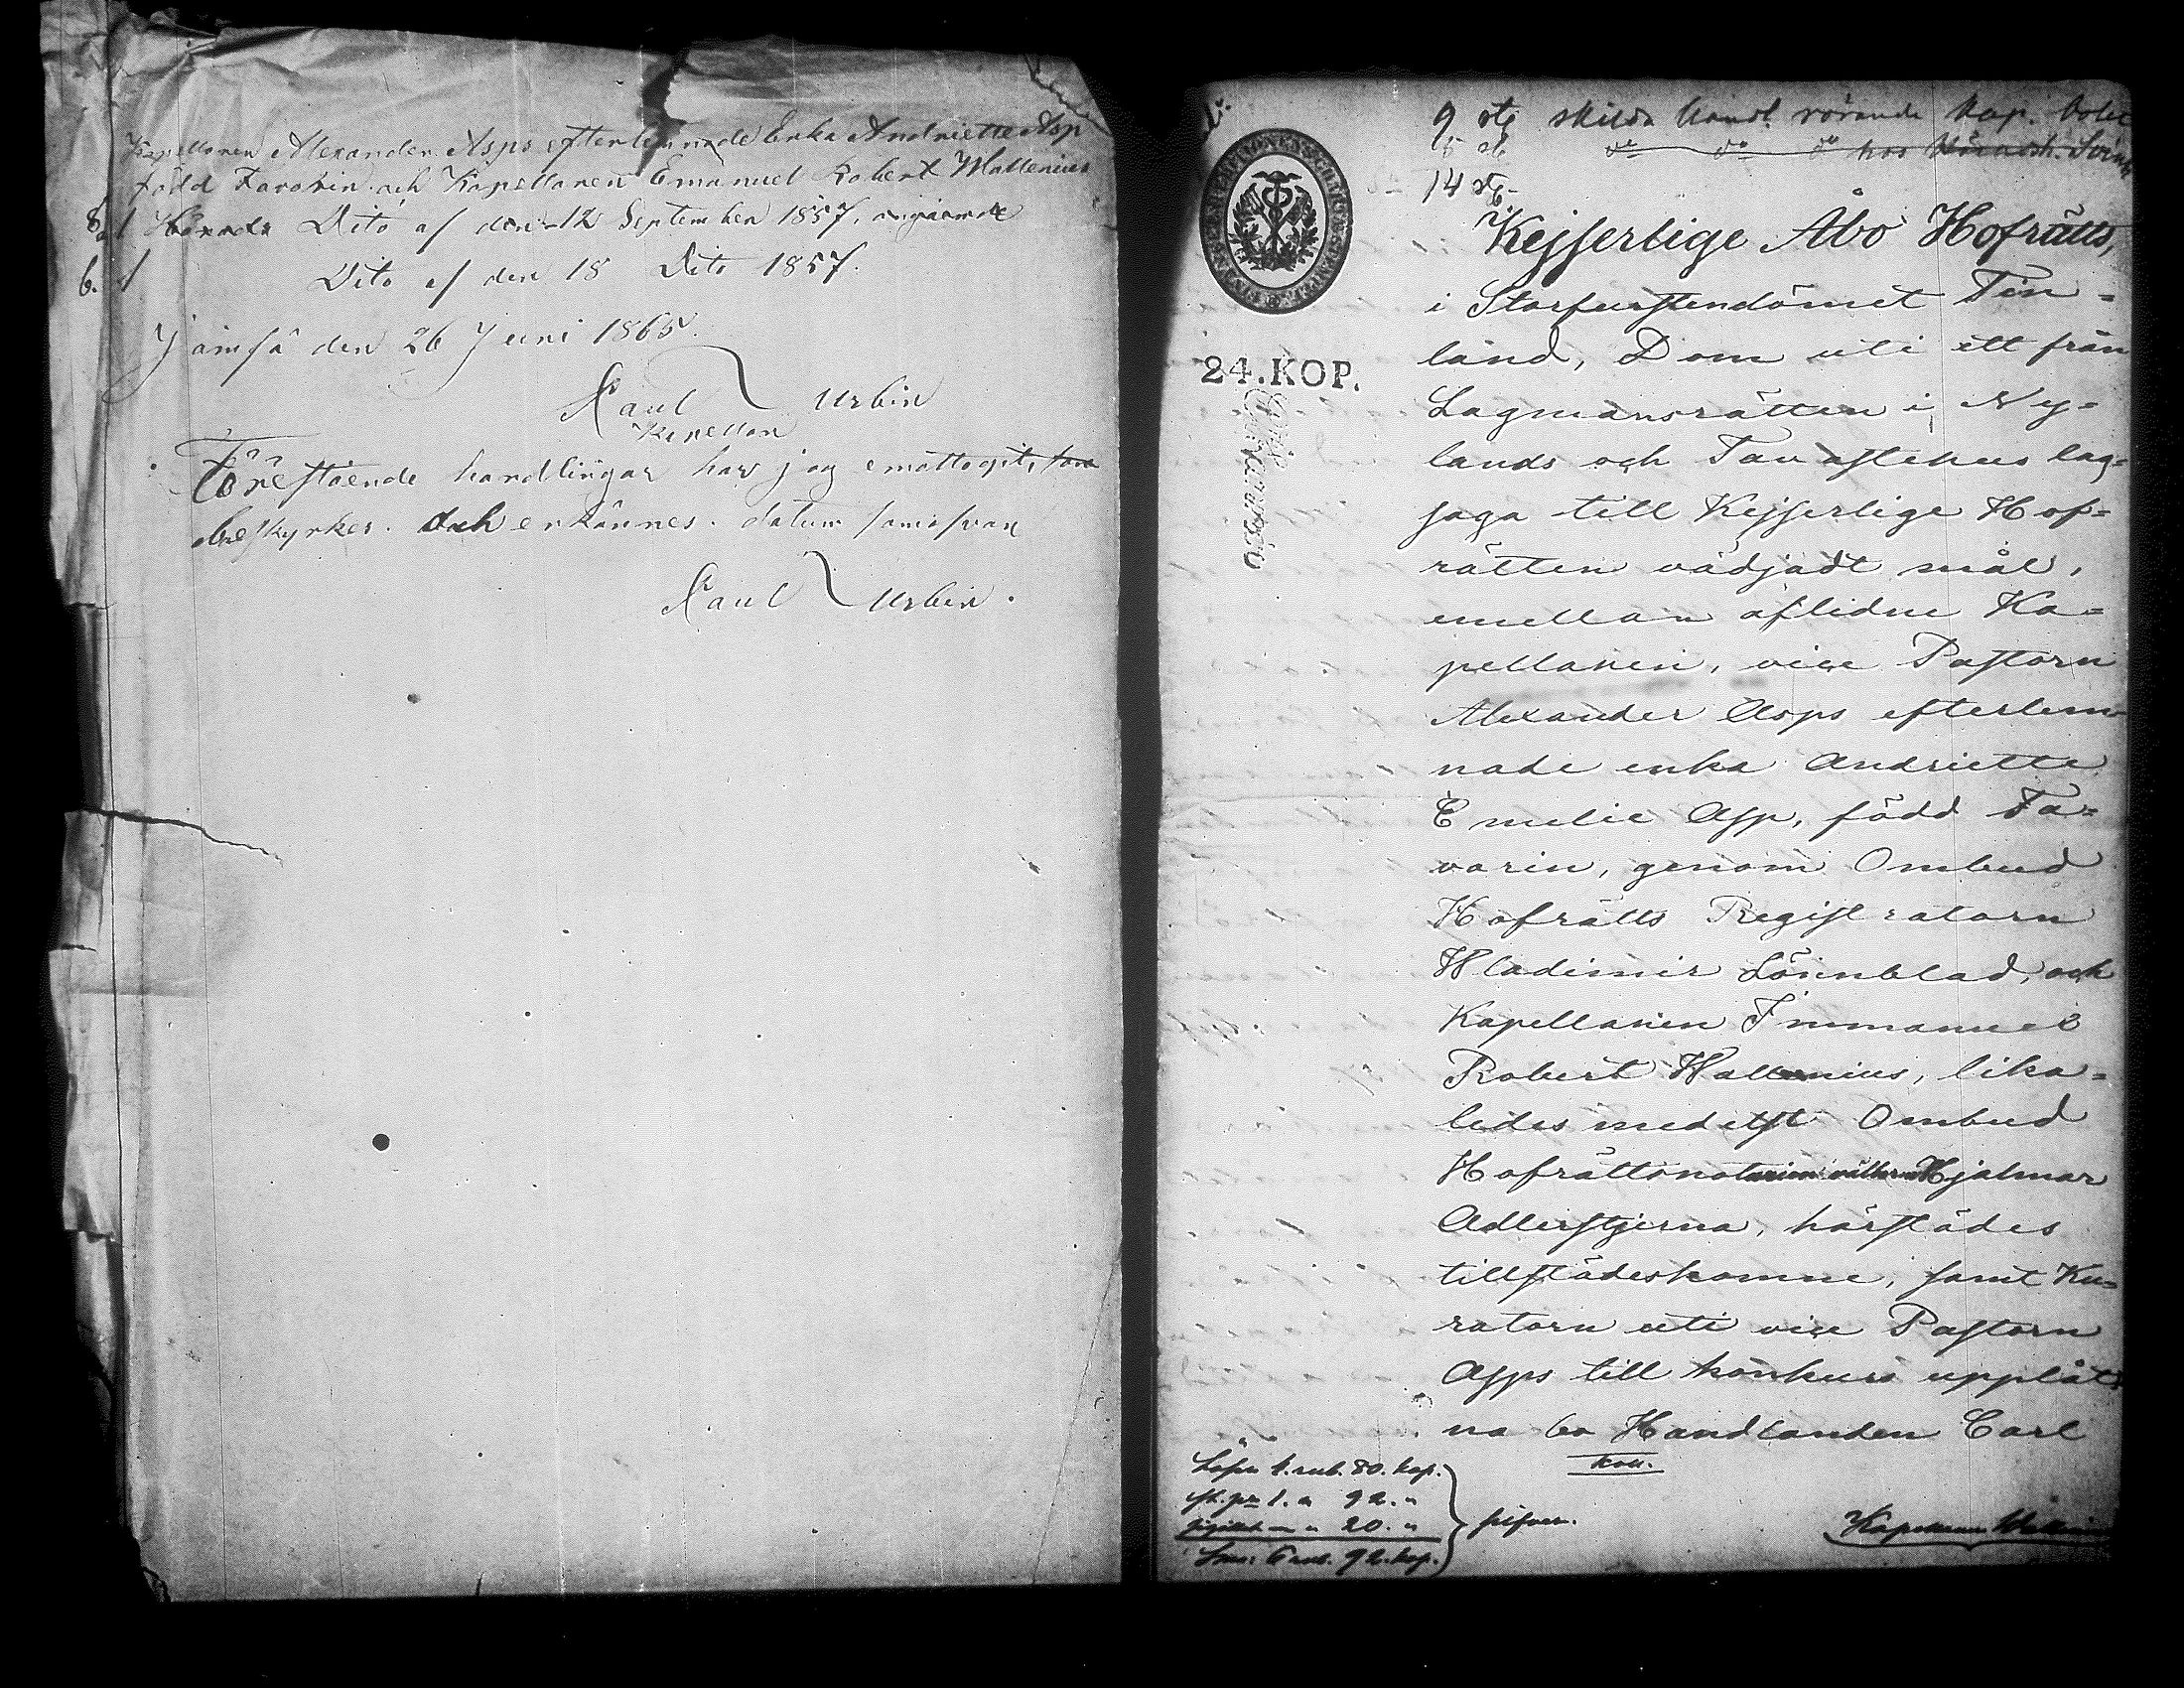 Kapellanen Alexander Asps efterlemnade Enka Andriette Asp
född Favorin och Kapellanen Emanuel Robert Wallenius
Dito af den 12 September 1857, angående
6. Dito af den 18 Dito 1857.
Jämsä den 26 Juni 1865.
Paul Urbin
Kapellan
Föreftåend handlingar har jag emottagit,
och erkännes. datum som ofvan
Paul Urbin.
9 st skilda handl. rörande Kap. bolet
14 st
Kejserlige Åbo Hofrätts,
i Storfurstendömet Fin=
land, Dom uti ett från
Lagmansrätten i Ny=
lands och Tavastehus lag=
saga till Kejserlige Hof=
rätten vädjadt mål,
emellan aflidne Ka=
pellanen, vice Pastorn
Alexander Asps efterlem-
nade enka Andriette
Emelie Asp, född Fa=
vorin, genom Ombud
Hofrätts Registratorn
Wladimir Lönnblad, och
Kapellanen Immanuel
Robert Wallenius, lika=
ledes medelst Ombud
Hofrättsnotarien Hjalmar
Adlerstjerna, härstädes
tillstädeskomne, samt Ku=
ratorn uti vice Pastorn
Asps till konkurs upplåt=
na bo Handlanden Carl
24. KOP.
Lösen 4. rub. 80. kop.
1. " 92. "
20. "
Sum: 6 rub. 92. kop.
silfver.
Kapellanen Wallenius